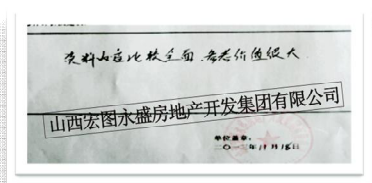 资料内容比较全面 参考价值很大
山西宏图永盛房地产开发集团有限公司
单位盖章：
二〇一二年11月18日